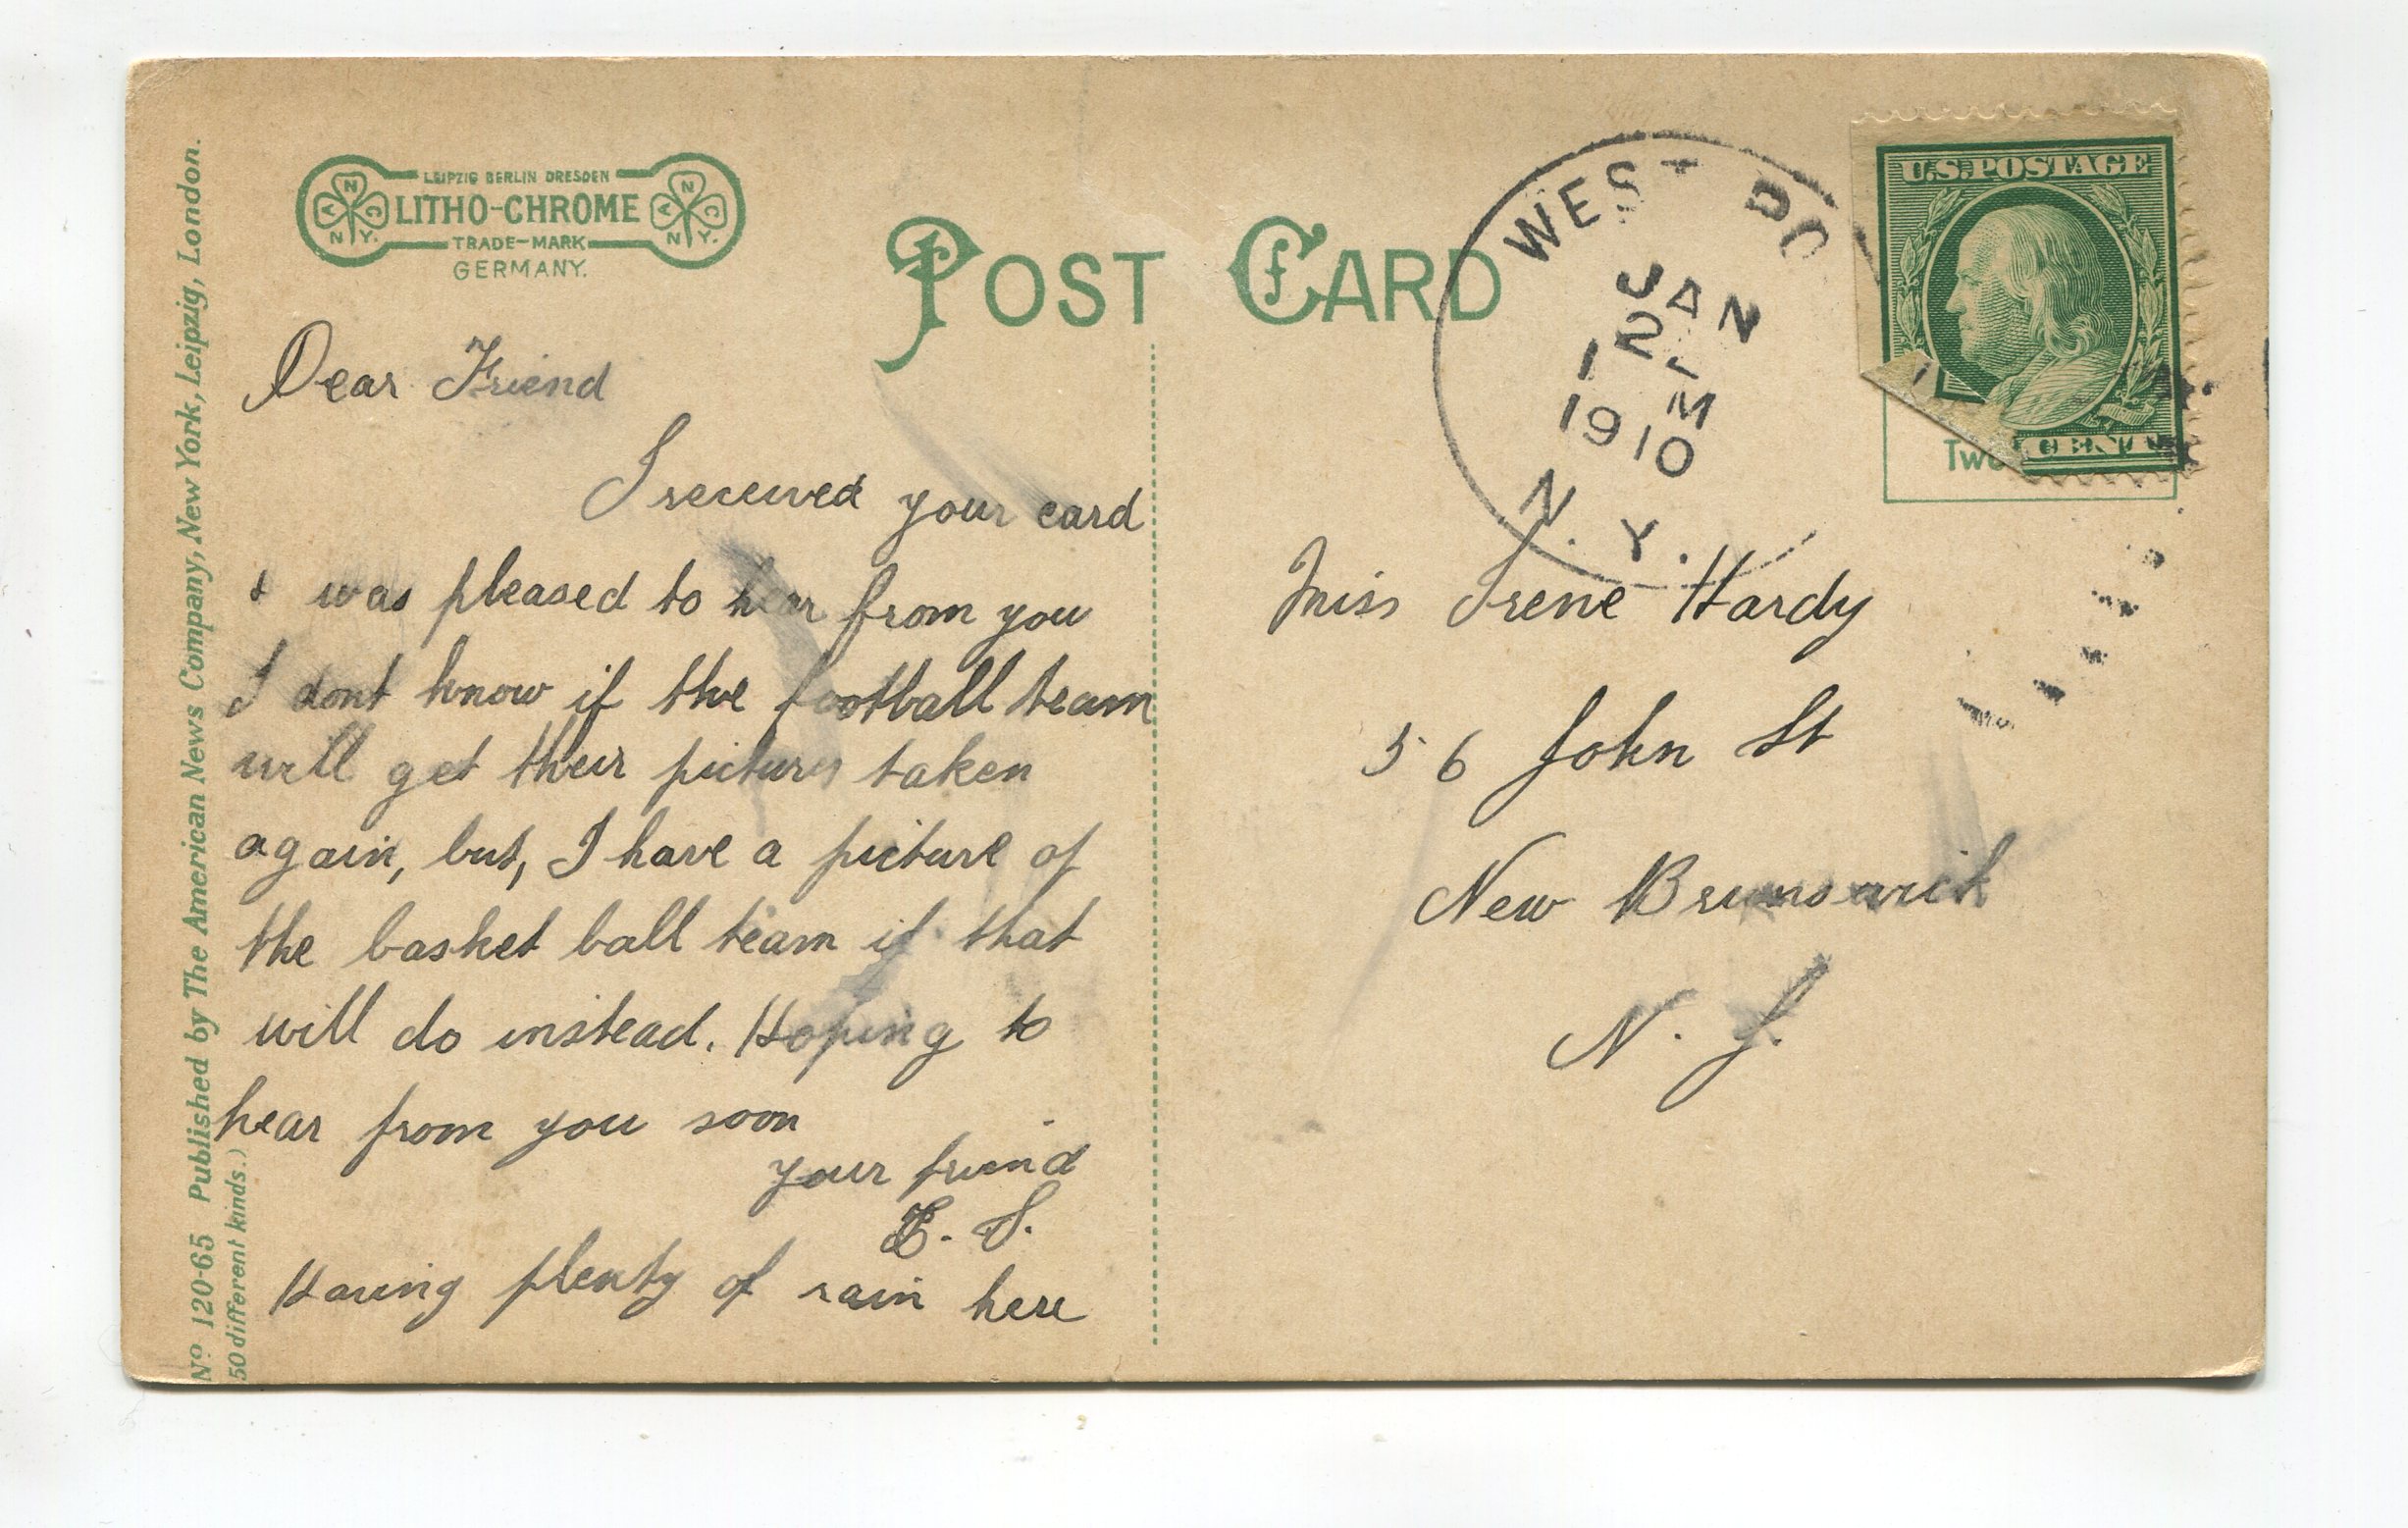 LEIPZIG BERLIN DRESDEN
LITHO-CHROME
TRADE-MARK
GERMANY.
A N C
N.Y.
A N C
N.Y.
POST CARD
Dear Friend
I received your card
& was pleased to hear from you
I dont know if the football team
will get their picture taken
again, but, I have a picture of
the basket ball team if that
will do instead. Hoping to
hear from you soon
your friend
E. S.
Having plenty of rain here
Nº 120-65 Published by The American News Company, New York, Leipzig, London.
50 different kinds.)
WEST PO
JAN
12
1 M
1910
N. Y.
U.S. POSTAGE
Two
Miss Irene Hardy
56 John St
New Brunswick
N. J.